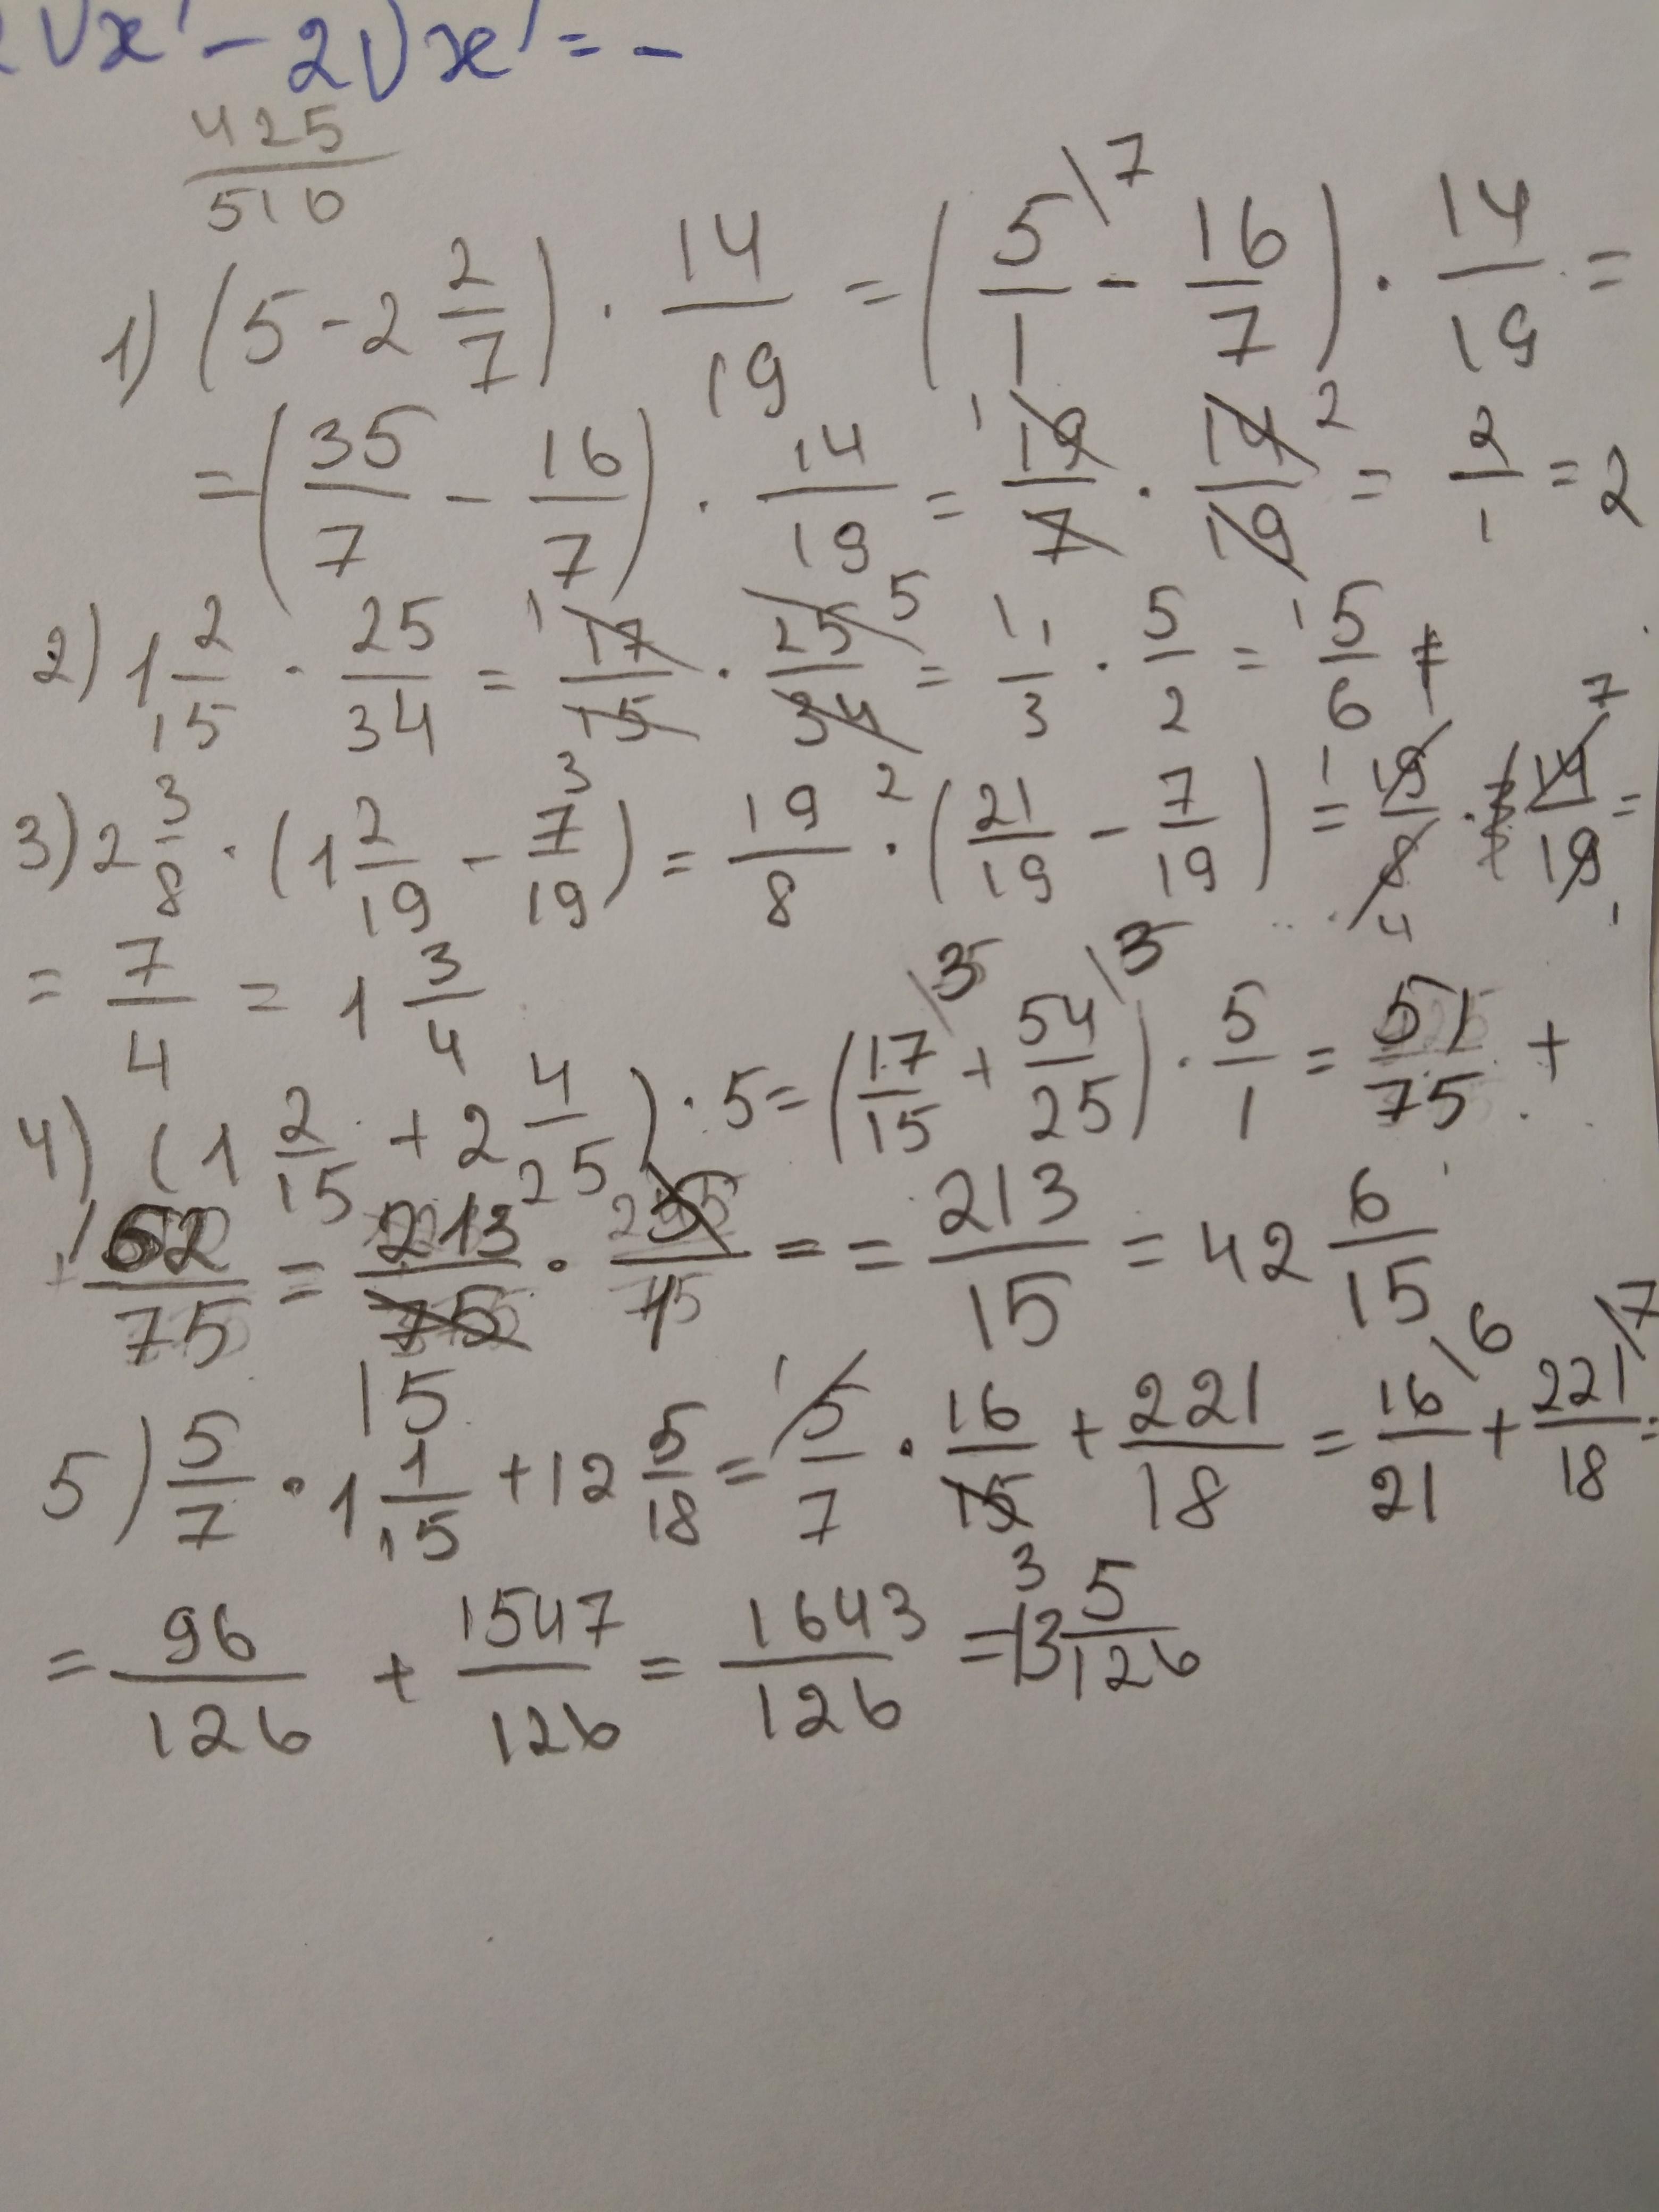 √x - 2√x = -
425/510
1) (5 - 2 2/7) · 14/19 = (5/1 \7 - 16/7) · 14/19 =
= (35/7 - 16/7) · 14/19 = 1 19/7 · 14/19 2 = 2/1 = 2
2) 1 2/15 · 25/34 = 1 17/15 3 · 25/34 5 2 = 1/3 · 5/2 = 5/6
3) 2 3/8 · (1 2/19 - 7/19) = 19/8 · (21/19 - 7/19) = 1 19/8 4 · 14/19 7 1 =
= 7/4 = 1 3/4
4) (1 2/15 + 2 4/25) · 5 = (17/15 \5 + 54/25 \3) · 5/1 = 51/75 +
+ 162/75 = 213/75 15 · 5/1 = = 213/15 = 42 6/15
5) 5/7 · 1 1/15 + 12 5/18 = 1 5/7 · 16/15 3 + 221/18 = 16/21 \6 + 221/18 \7 =
= 96/126 + 1547/126 = 1643/126 = 13 5/126